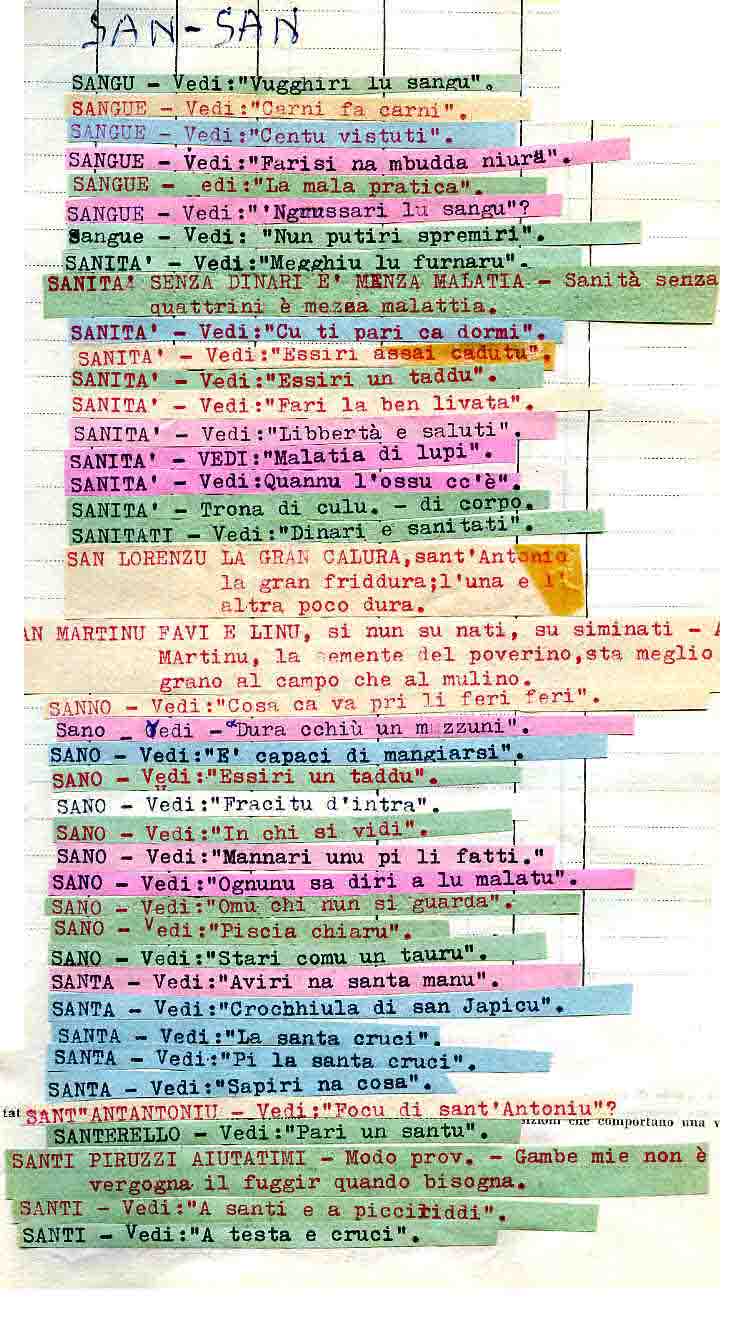 SAN-SAN
SANGU - Vedi:"Vugghiri lu sangu".
SANGUE - Vedi:"Carni fa carni".
SANGUE - Vedi:"Centu vistuti".
SANGUE - Vedi:"Farisi na mbudda niura".
SANGUE - edi:"La mala pratica".
SANGUE - Vedi:"'Ngrussari lu sangu"?
Sangue - Vedi: "Nun putiri spremiri".
SANITA' - Vedi:"Megghiu lu furnaru".
SANITA' SENZA DINARI E' MENZA MALATIA - Sanità senza
quattrini è mezza malattia.
SANITA' - Vedi:"Cu ti pari ca dormi".
SANITA' - Vedi:"Essiri assai cadutu".
SANITA' - Vedi:"Essiri un taddu".
SANITA' - Vedi:"Fari la ben livata".
SANITA' - Vedi:"Libbertà e saluti".
SANITA' - VEDI:"Malatia di lupi".
SANITA' - Vedi:Quannu l'ossu cc'è".
SANITA' - Trona di culu. - di corpo.
SANITATI - Vedi:"Dinari e sanitati".
SAN LORENZU LA GRAN CALURA,sant'Antonio
la gran friddura;l'una e l'
altra poco dura.
AN MARTINU FAVI E LINU, si nun su nati, su siminati -
MArtinu, la semente del poverino,sta meglio
grano al campo che al mulino.
SANNO - Vedi:"Cosa ca va pri li feri feri".
Sano - Vedi - "Dura cchiù un mozzuni".
SANO - Vedi:"E' capaci di mangiarsi".
SANO - Vedi:"Essiri un taddu".
SANO - Vedi:"Fracitu d'intra".
SANO - Vedi:"In chi si vidi".
SANO - Vedi:"Mannari unu pi li fatti."
SANO - Vedi:"Ognunu sa diri a lu malatu".
SANO - Vedi:"Omu chi nun si guarda".
SANO - Vedi:"Piscia chiaru".
SANO - Vedi:"Stari comu un tauru".
SANTA - Vedi:"Aviri na santa manu".
SANTA - Vedi:"Crochhiula di san Japicu".
SANTA - Vedi:"La santa cruci".
SANTA - Vedi:"Pi la santa cruci".
SANTA - Vedi:"Sapiri na cosa".
tat SANT"ANTANTONIU - Vedi:"Focu di sant'Antoniu"?
che comportano una v
SANTERELLO - Vedi:"Pari un santu".
SANTI PIRUZZI AIUTATIMI - Modo prov. - Gambe mie non è
vergogna il fuggir quando bisogna.
SANTI - Vedi:"A santi e a picciriddi".
SANTI - Vedi:"A testa e cruci".